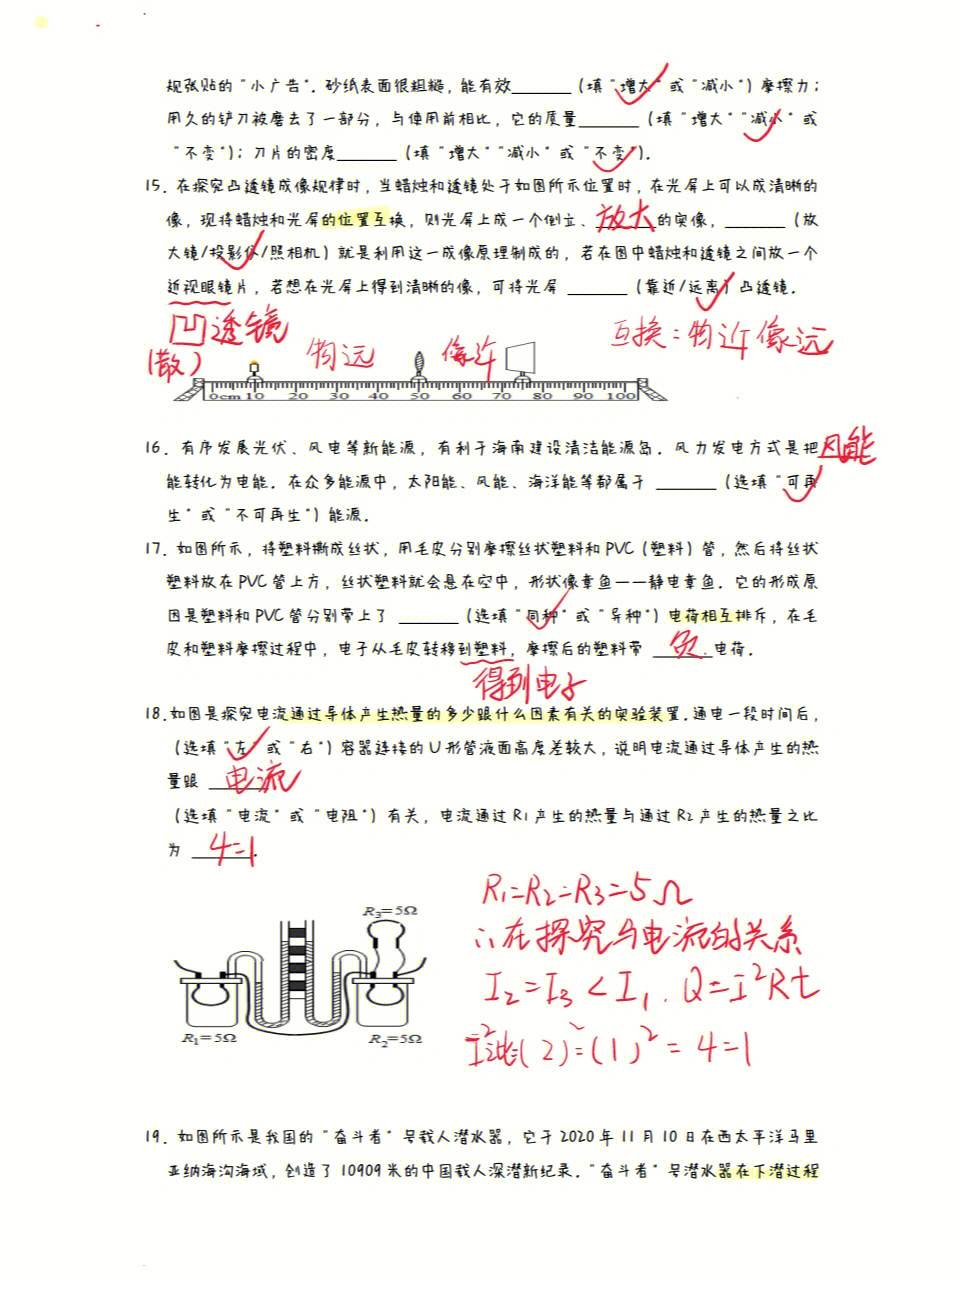 规张贴的“小广告”. 砂纸表面很粗糙, 能有效______(填“增大”或“减小”)摩擦力;
用久的铲刀被磨去了一部分, 与使用前相比, 它的质量______(填“增大”“减小”或
“不变”); 刀片的密度______(填“增大”“减小”或“不变”).
15. 在探究凸透镜成像规律时, 当蜡烛和透镜处于如图所示位置时, 在光屏上可以成清晰的
像, 现将蜡烛和光屏的位置互换, 则光屏上成一个倒立、放大的实像, ______(放
大镜/投影仪/照相机)就是利用这一成像原理制成的, 若在图中蜡烛和透镜之间放一个
近视眼镜片, 若想在光屏上得到清晰的像, 可将光屏 ______(靠近/远离)凸透镜.
凹透镜
(散)
物远 像近
互换:物近像远
0cm 10 20 30 40 50 60 70 80 90 100
16. 有序发展光伏、风电等新能源, 有利于海南建设清洁能源岛. 风力发电方式是把风能
能转化为电能. 在众多能源中, 太阳能、风能、海洋能等都属于 ______(选填“可再
生”或“不可再生”)能源.
17. 如图所示, 将塑料撕成丝状, 用毛皮分别摩擦丝状塑料和PVC(塑料)管, 然后将丝状
塑料放在PVC管上方, 丝状塑料就会悬在空中, 形状像章鱼一一静电章鱼. 它的形成原
因是塑料和PVC管分别带上了 ______(选填“同种”或“异种”)电荷相互排斥, 在毛
皮和塑料摩擦过程中, 电子从毛皮转移到塑料, 摩擦后的塑料带 负 电荷.
得到电子
18.如图是探究电流通过导体产生热量的多少跟什么因素有关的实验装置.通电一段时间后,
(选填“左”或“右”)容器连接的U形管液面高度差较大, 说明电流通过导体产生的热
量跟 电流
(选填“电流”或“电阻”)有关, 电流通过R1产生的热量与通过R2产生的热量之比
为 4:1.
R1=R2=R3=5Ω
∴在探究与电流的关系
I2=I3<I1. Q=I²Rt
I²比=(2)²:(1)²=4:1
R₃=5Ω
R₁=5Ω
R₂=5Ω
19. 如图所示是我国的“奋斗者”号载人潜水器, 它于2020年11月10日在西太平洋马里
亚纳海沟海域, 创造了10909米的中国载人深潜新纪录.“奋斗者”号潜水器在下潜过程